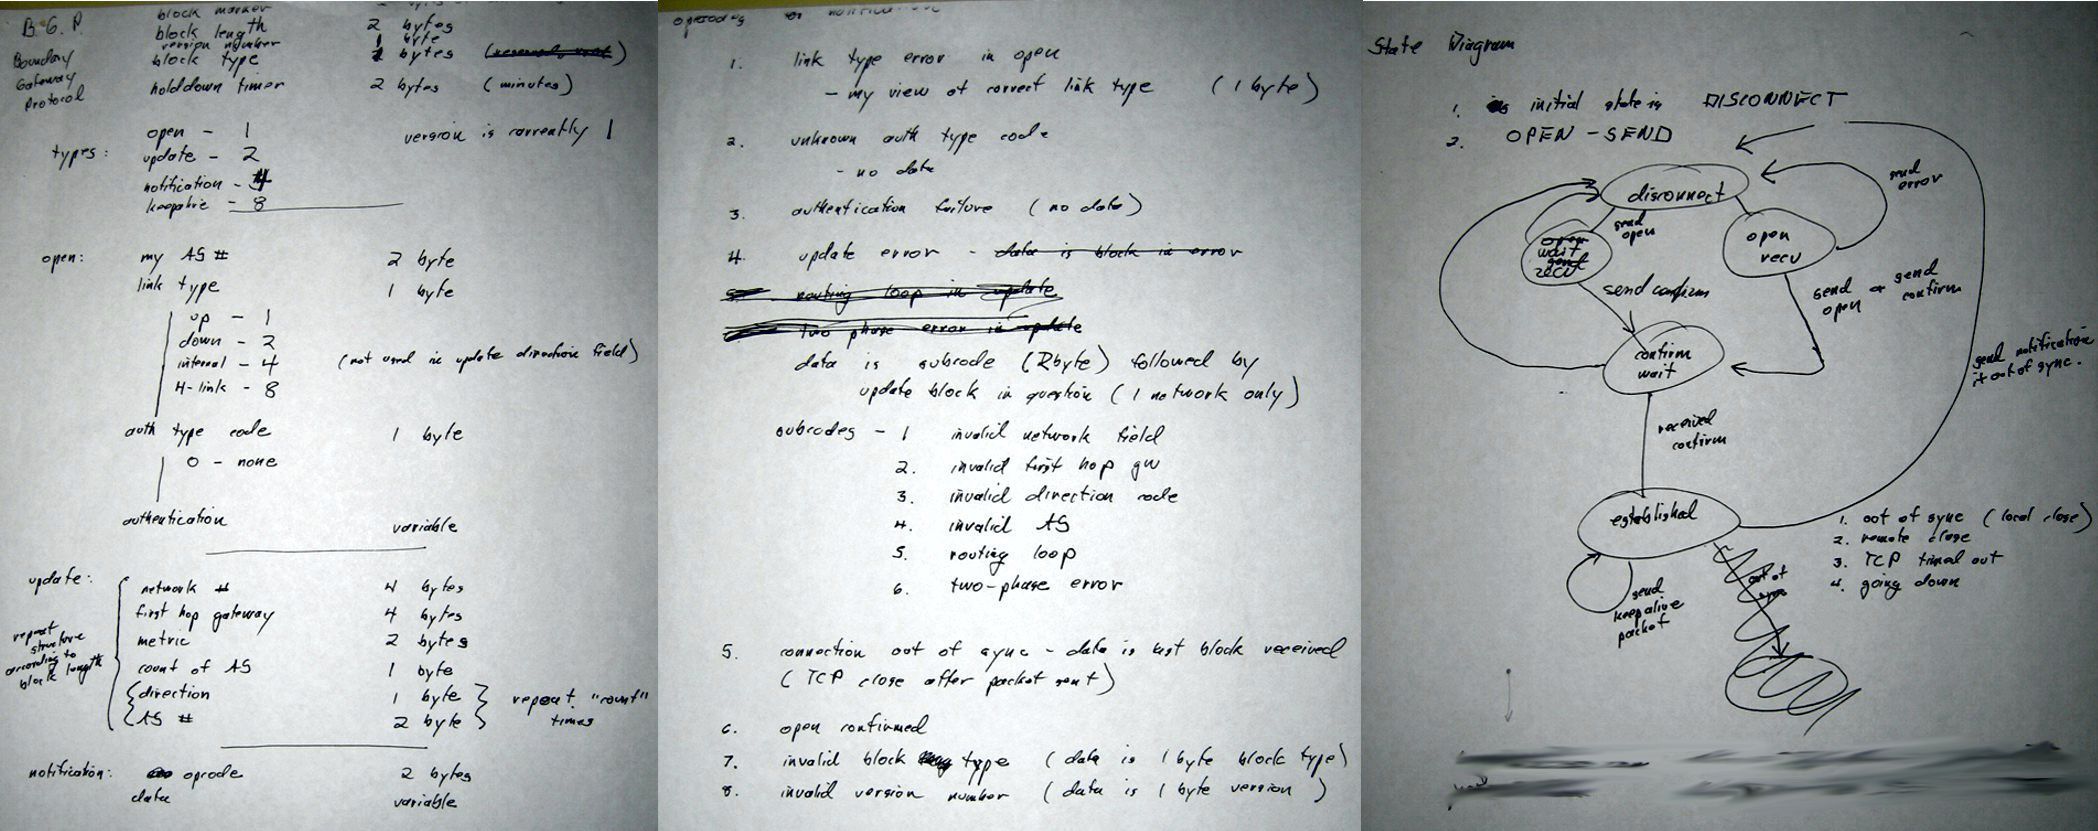 B.G.P.
Boundary
Gateway
Protocol
block marker
block length 2 bytes
version number 1 byte
block type bytes
holddown timer 2 bytes (minutes)
types:
open - 1 version is currently 1
update - 2
notification - 4
keepalive - 8
open: my AS # 2 byte
link type 1 byte
up - 1
down - 2
internal - 4 (not used in update direction field)
H-link - 8
auth type code 1 byte
0 - none
authentication variable
update:
repeat
structure
according to
block length
network # 4 bytes
first hop gateway 4 bytes
metric 2 bytes
count of AS 1 byte
direction 1 byte
AS # 2 byte
repeat "count"
times
notification: opcode 2 bytes
data variable
opcodes notifications
1. link type error in open
- my view of correct link type (1 byte)
2. unknown auth type code
- no data
3. authentication failure (no data)
4. update error - data is block in error
routing loop in update
two phase error in update
data is subcode (2byte) followed by
update block in question (1 network only)
subcodes - 1 invalid network field
2. invalid first hop gw
3. invalid direction code
4. invalid AS
5. routing loop
6. two-phase error
5. connection out of sync - data is last block received
(TCP close after packet sent)
6. open confirmed
7. invalid block type (data is 1 byte block type)
8. invalid version number (data is 1 byte version)
State Diagram
1. initial state is DISCONNECT
2. OPEN - SEND
disconnect
send
error
send
open
open
wait
send
recv
open
recv
send confirm
send
open
or send
confirm
confirm
wait
send notification
if out of sync.
received
confirm
established
1. out of sync (local close)
2. remote close
3. TCP timed out
4. going down
out of
sync
send
keepalive
packet